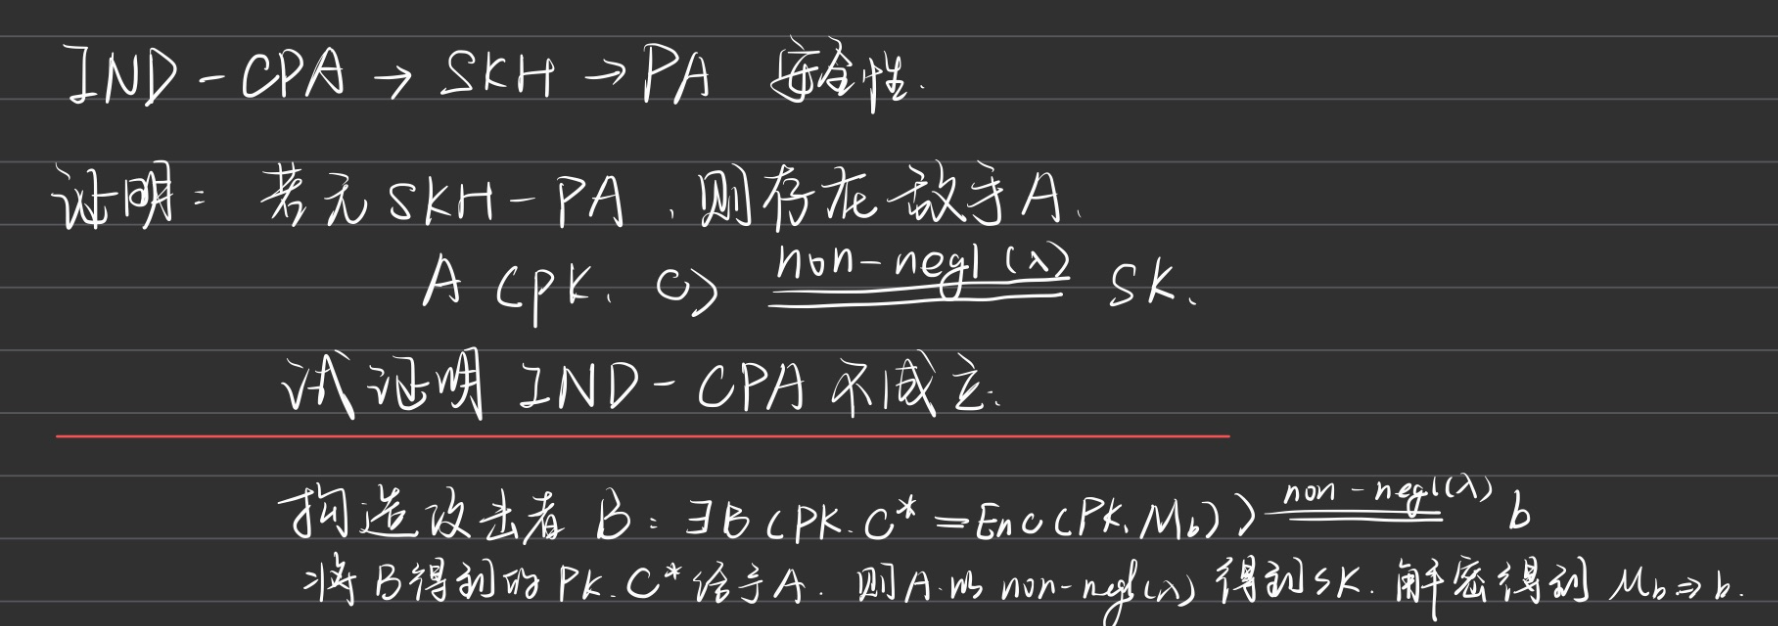 IND-CPA → SKH → PA 安全性.
证明: 若无SKH-PA, 则存在敌手A.
A (PK, C) non-negl(λ) SK.
试证明 IND-CPA 不成立.
构造攻击者 B: ∃B(PK. C*=Enc(PK, Mb)) non-negl(λ) b
将B得到的PK. C*给予A. 则A以 non-negl(λ) 得到SK. 解密得到 Mb⇒b.